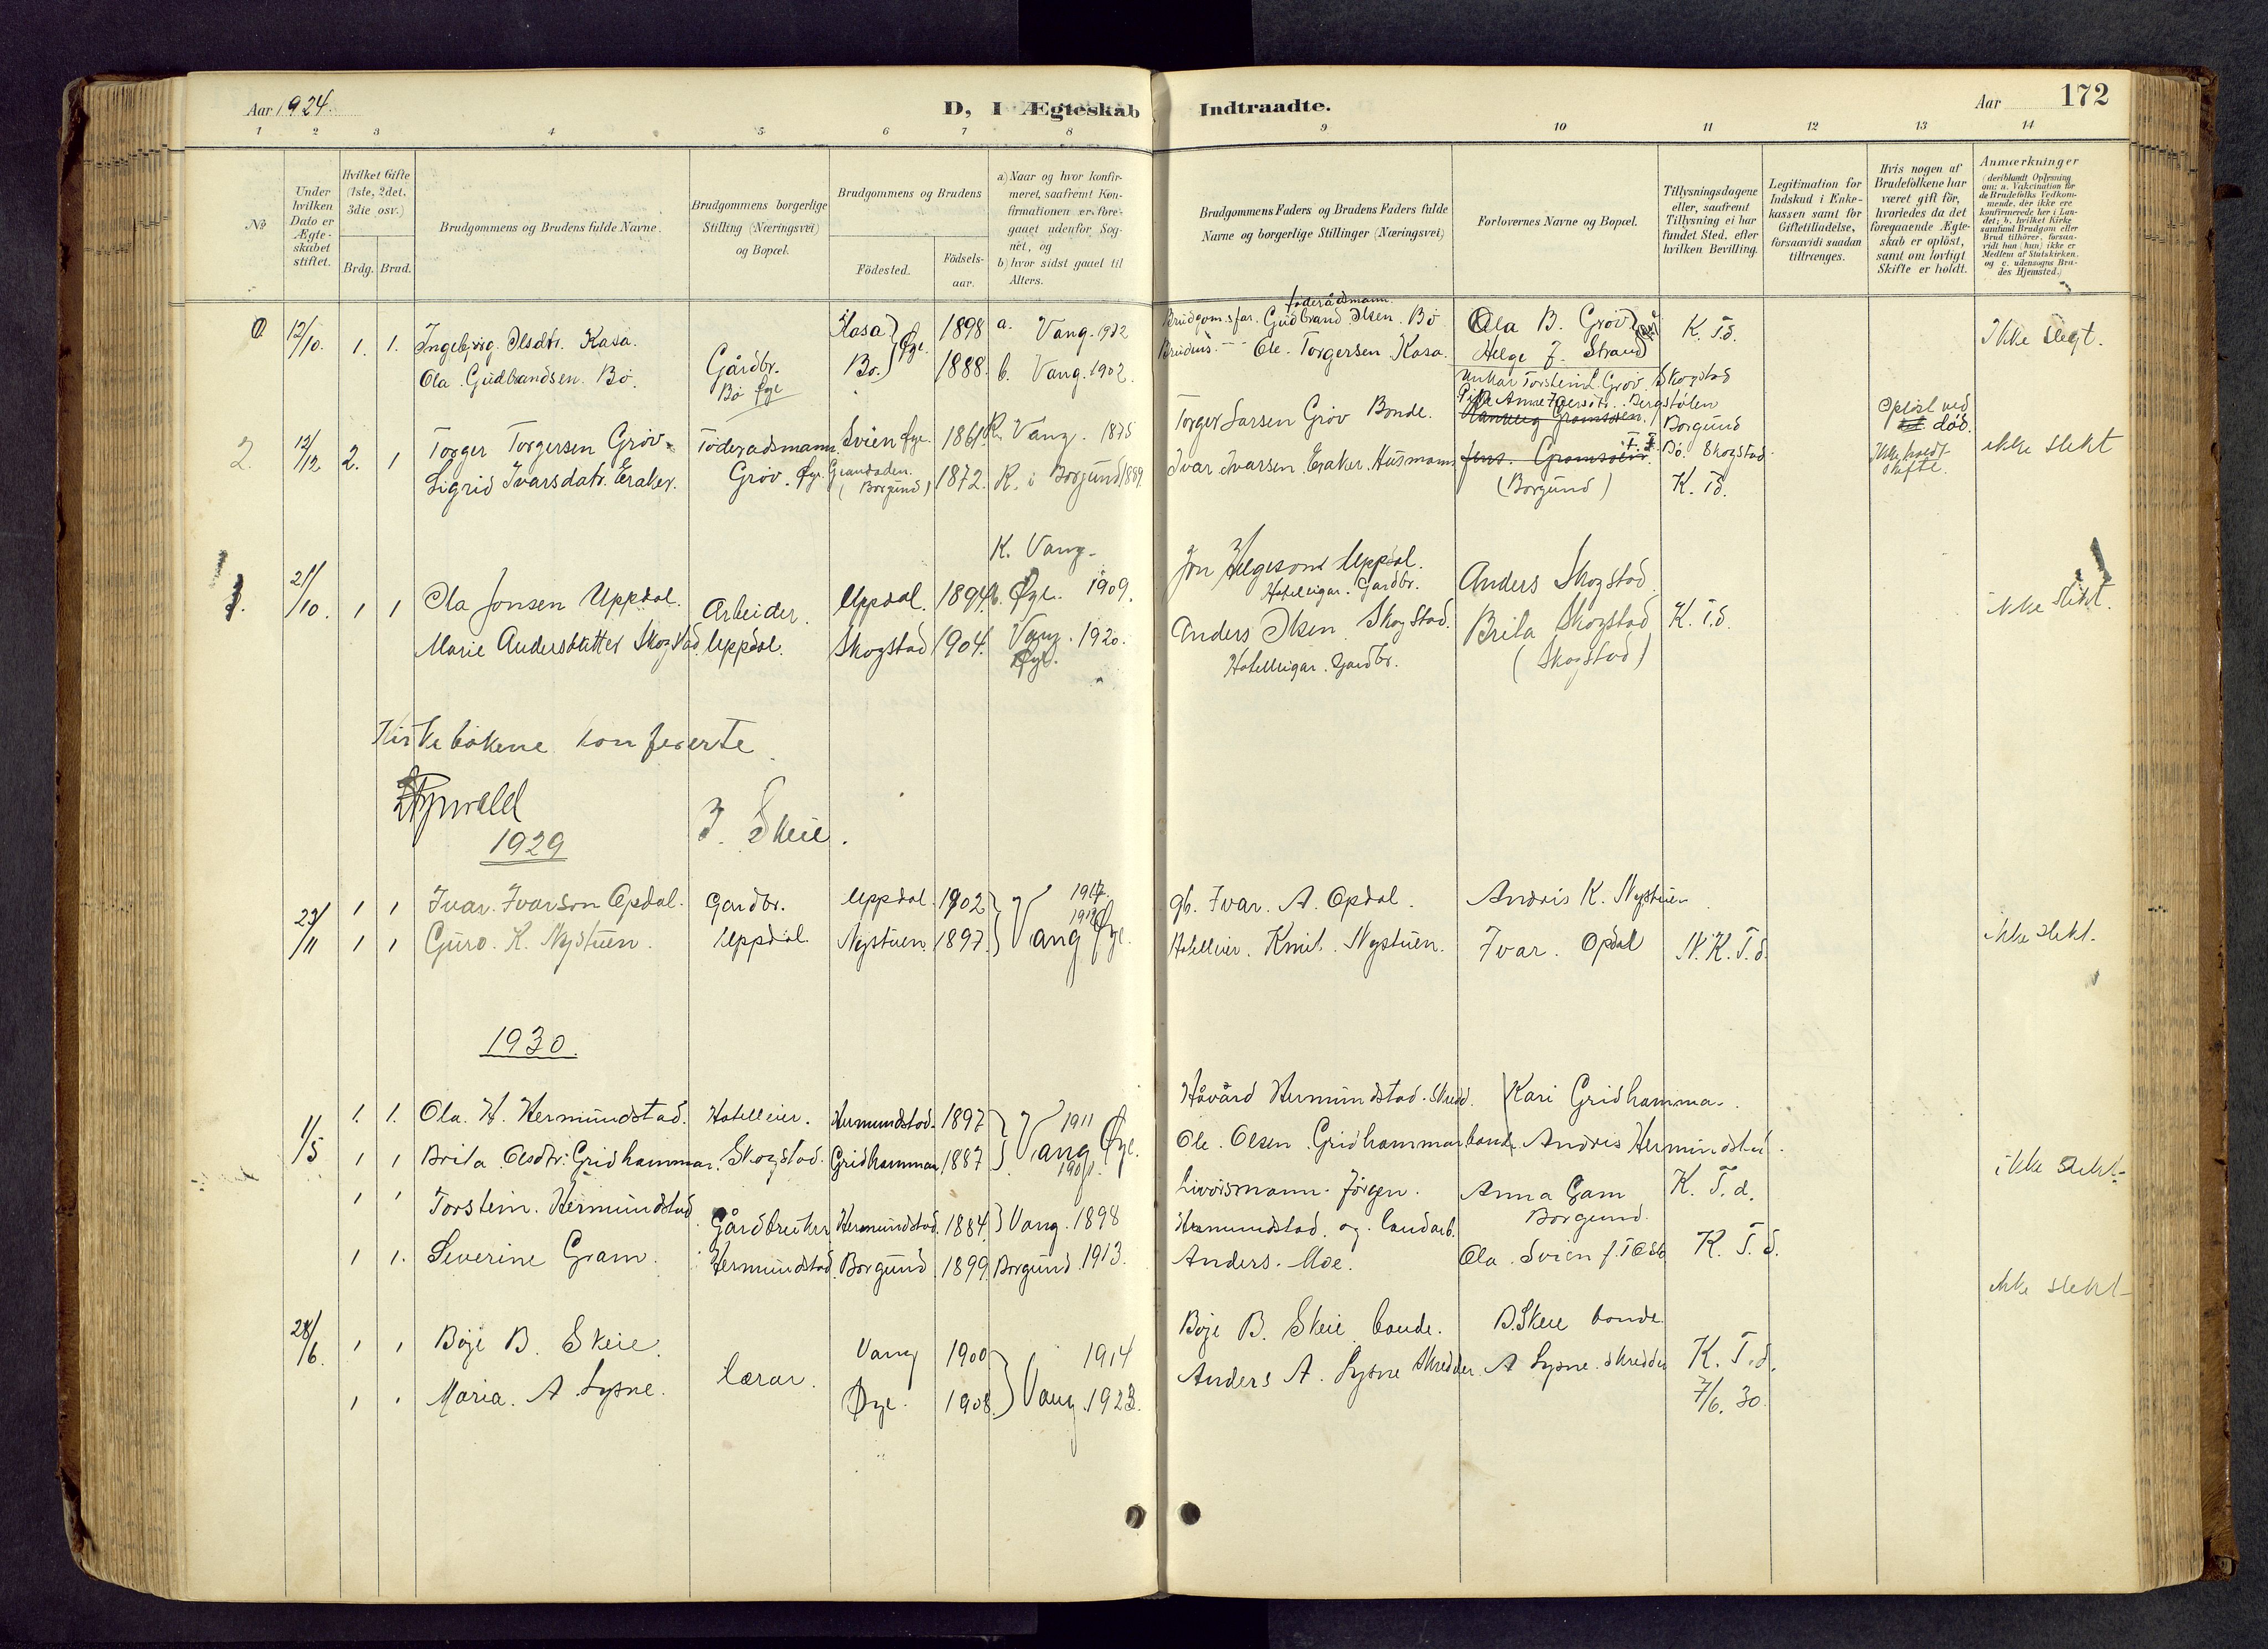 Aar 1924.
D, I Ægteskab Indtraadte.
Aar 172
1 2 3 4 5 6 7 8 9 10 11 12 13 14
No
Under hvilken Dato er Ægteskabet stiftet.
Hvilket Gifte (1ste, 2det, 3die osv.)
Brdg. Brud.
Brudgommens og Brudens fulde Navne.
Brudgommens borgerlige Stilling (Næringsvei) og Bopæl.
Brudgommens og Brudens
Födested.
Födselsaar.
a) Naar og hvor konfirmeret, saafremt Konfirmationen er foregaaet udenfor Sognet, og
b) hvor sidst gaaet til Alters.
Brudgommens Faders og Brudens Faders fulde Navne og borgerlige Stillinger (Næringsvei)
Forlovernes Navne og Bopæl.
Tillysningsdagene eller, saafremt Tillysning ei har fundet Sted, efter hvilken Bevilling.
Legitimation for Indskud i Enkekassen samt for Giftetilladelse, forsaavidt saadan tiltrænges.
Hvis nogen af Brudefolkene har været gift för, hvorledes da det foregaaende Ægteskab er oplöst, samt om lovligt Skifte er holdt.
Anmærkninger (deriblandt Oplysning om: a. Vakcination for de Brudefolks Vedkommende, der ikke ere konfirmerede her i Landet; b. hvilket Kirkesamfund Brudgom eller Brud tilhörer, forsaavidt han (hun) ikke er Medlem af Statskirken, og c. udensogns Brudes Hjemsted.)
12/10. 1. 1. Ingebjörg Olsdtr. Kasa. Kasa 1898 a. Vang. 1912
Brudgoms far. Gudbrand Olsen Bö föderådsmann. Ola B. Gröv K. Td. Ikke slegt.
Ola Gudbrandsen Bö. Gårdbr. Bö Øye Bö. Øye. 1888. b. Vang. 1902.
Brudens - Ole Torgersen Kasa. Helge J. Strand
2. 12/12 2. 1 Torger Torgersen Gröv Föderadsmann Svien Øye. 1861 K. Vang. 1875
Torger Larsen Gröv Bonde. Borgund Oplöst ved död. ikke slekt
Sigrid Ivarsdatr. Eraker. Gröv. Øye (Borgund) 1872. K. i Borgund 1889
Ivar Ivarsen Eraker. Husmann Bö. Skogstad Ikke holdt skifte.
(Borgund) K. Td.
K. Vang.
21/10. 1 1 Ola Jonsen Uppdal. Arbeider. Uppdal. 1894 b. Øye. 1909.
Jon Helgeson Uppdal. Hotelleigar. Gardbr. Anders Skogstad. ikke slekt.
Marie Andersdatter Skogstad Uppdal. Skogstad 1904. Vang. 1920. Øye.
Anders Olsen Skogstad. Hotelleigar. Gardbr. Brita Skogstad (Skogstad) K. T.d.
Kirkebökene konfererte
I. Skeie.
1929
23/11 1 1 Ivar Ivarson Opdal. Gardbr. Uppdal. 1902 1917.
gb. Ivar A. Opdal. Andris K. Nystuen
1 1 Guro K. Nystuen. Uppdal. Nystuen 1897. Vang Øye.
Hotelleier. Knut Nystuen. Ivar Opdal N. K. T. d. ikke slekt.
1930.
1/5 1. 1. Ola H. Hermundstad. Hotelleier. Hermundstad. 1897 1911
Håvard Hermundstad. Skredd. Kari Gridhammar.
1 1 Brita Olsdtr. Gridhammar. Skogstad. Gridhammar 1887 Vang Øye. 1901.
Ole Olsen Gridhammar bonde Andris Hermundstad. ikke slekt.
1 1 Torstein Hermundstad Gårdbruker Hermundstad. 1884. Vang. 1898
Livoismann. Jörgen Hermundstad og landarb. Anna Gam Borgund. K. T. d.
1 1. Severine Gram. Hermundstad. Borgund 1899. Borgund. 1913.
Anders Moe. Ola Svien K. T. d. ikke slekt
28/6. 1 1 Böje B. Skeie. lærar. Vang 1900 1914
Böje B. Skeie bonde. B. Skeie bonde
1 1 Maria A. Lysne. Øye. 1908. Vang. 1923.
Anders A. Lysne Skredder. A Lysne. skredder K. T. d. 7/6. 30.